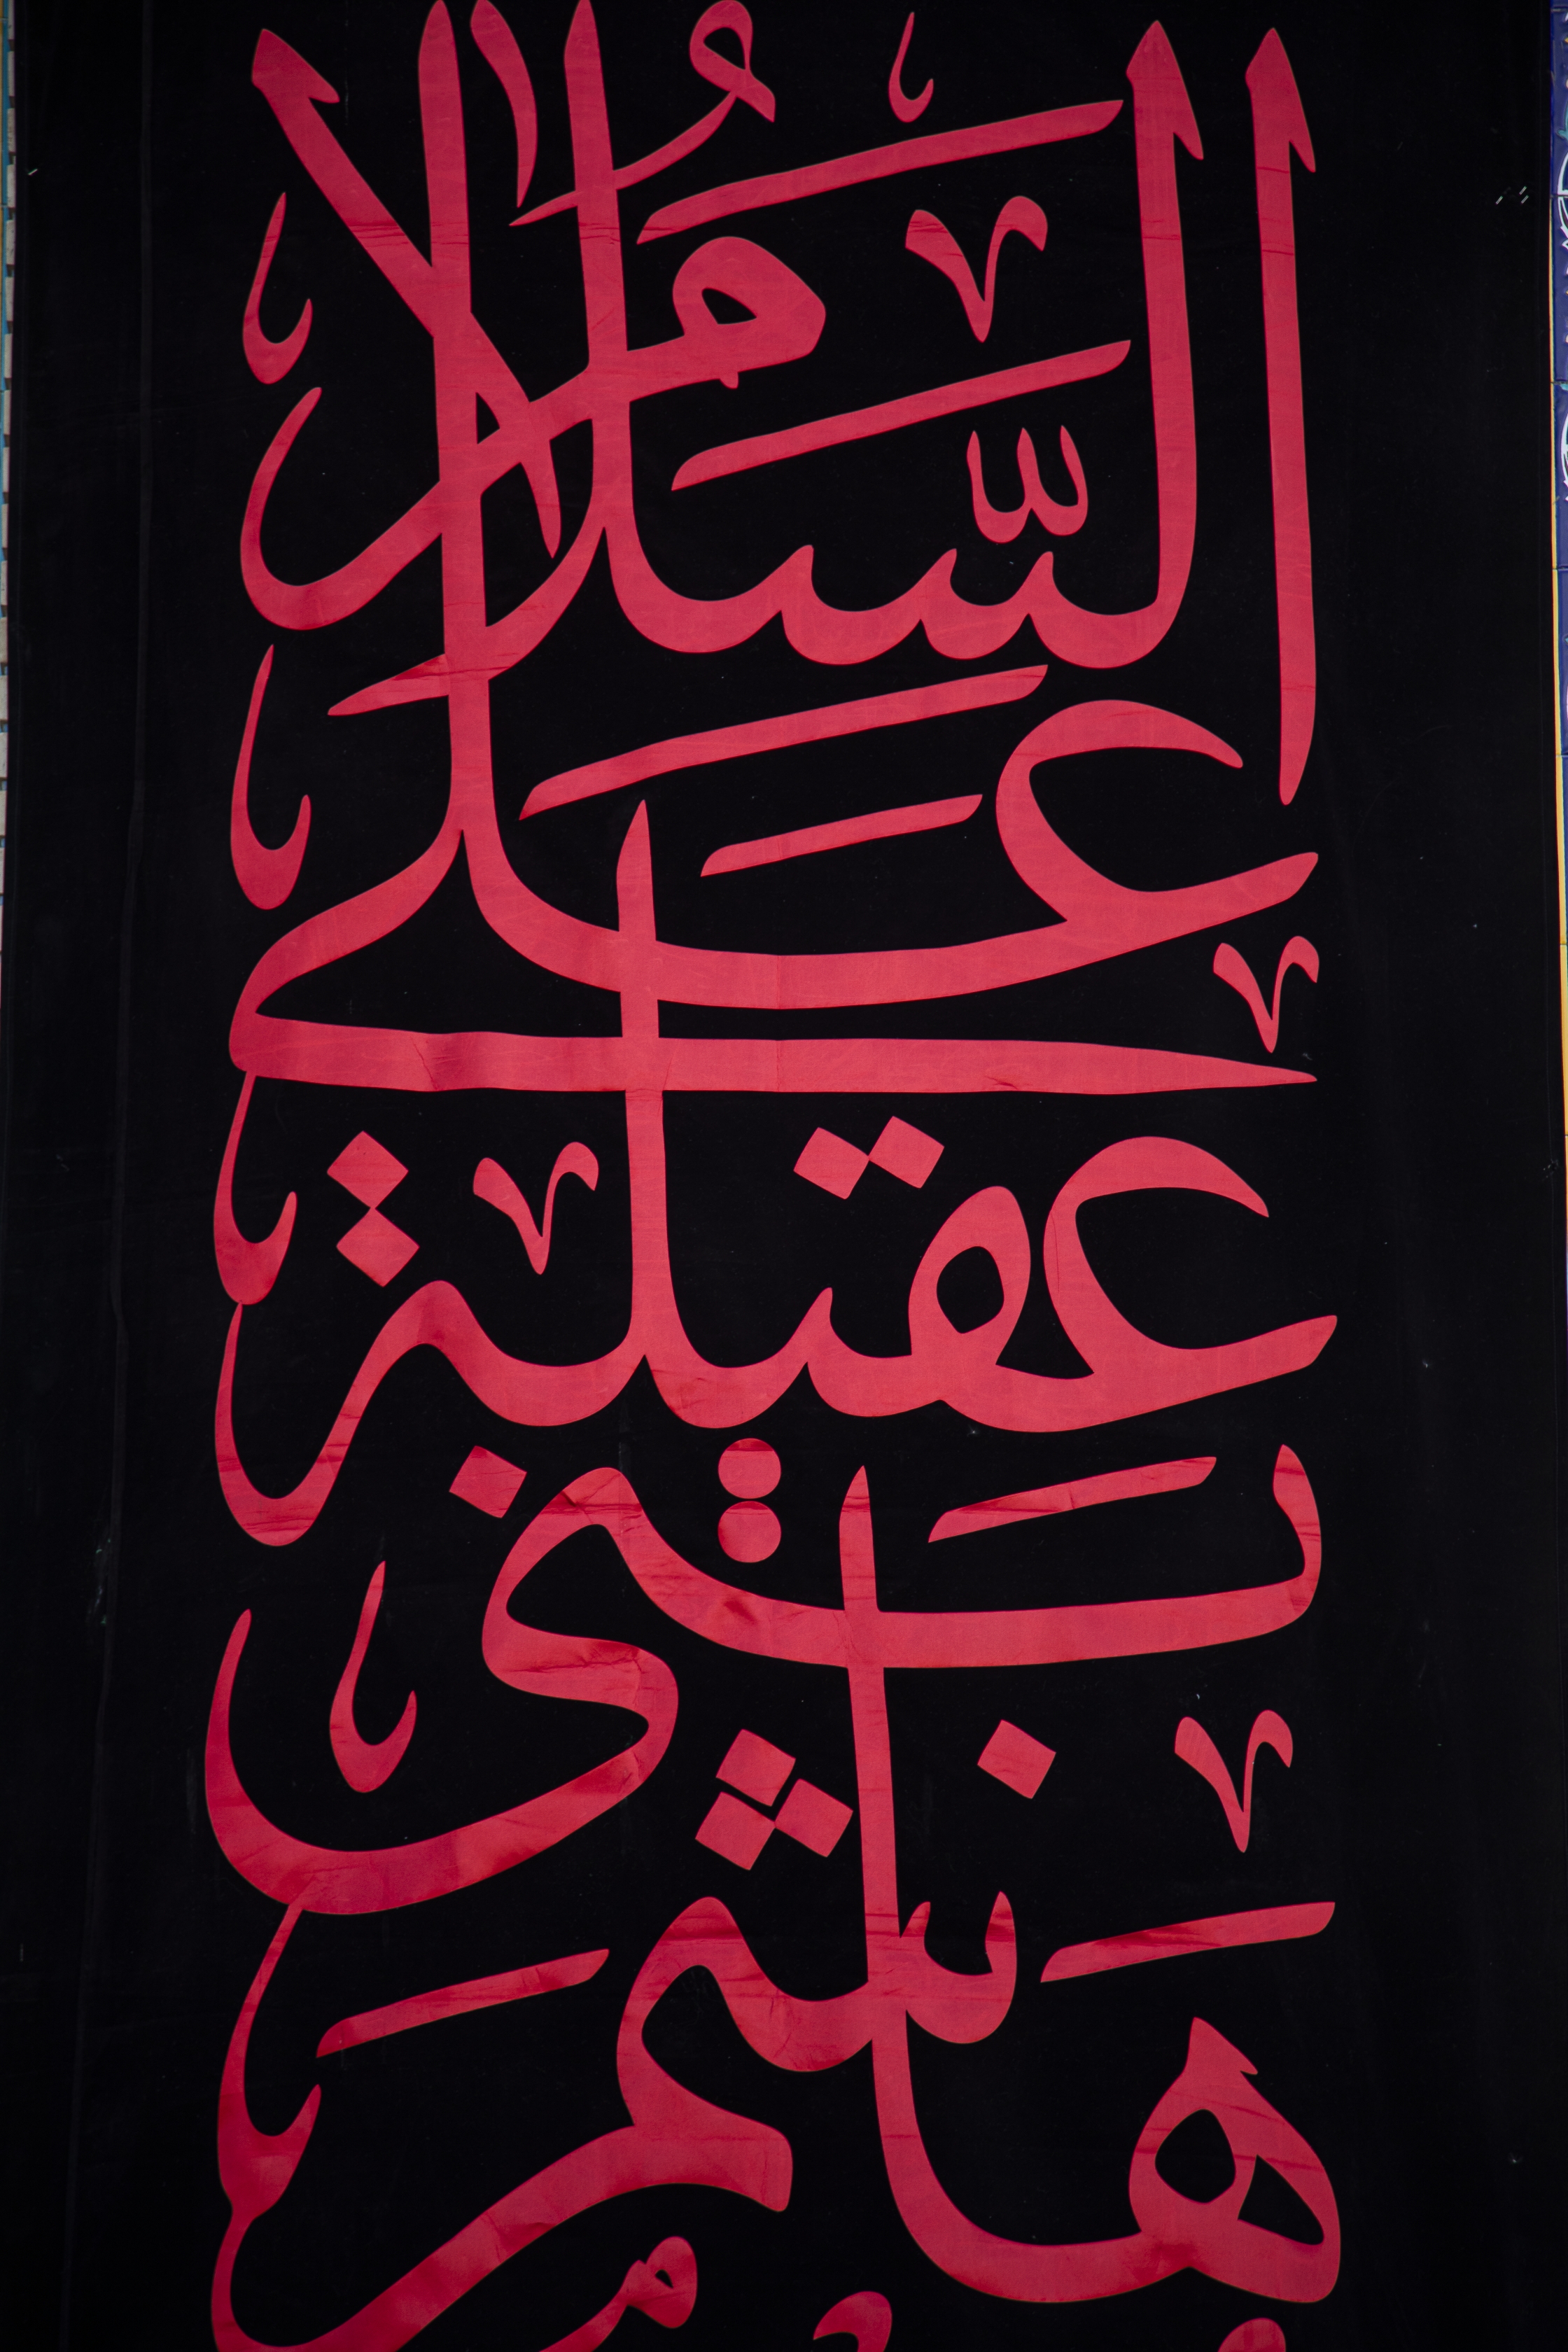 السَّلَامُ
عَلَى
عَقِيلَةِ
بَنِي
هَاشِمَ